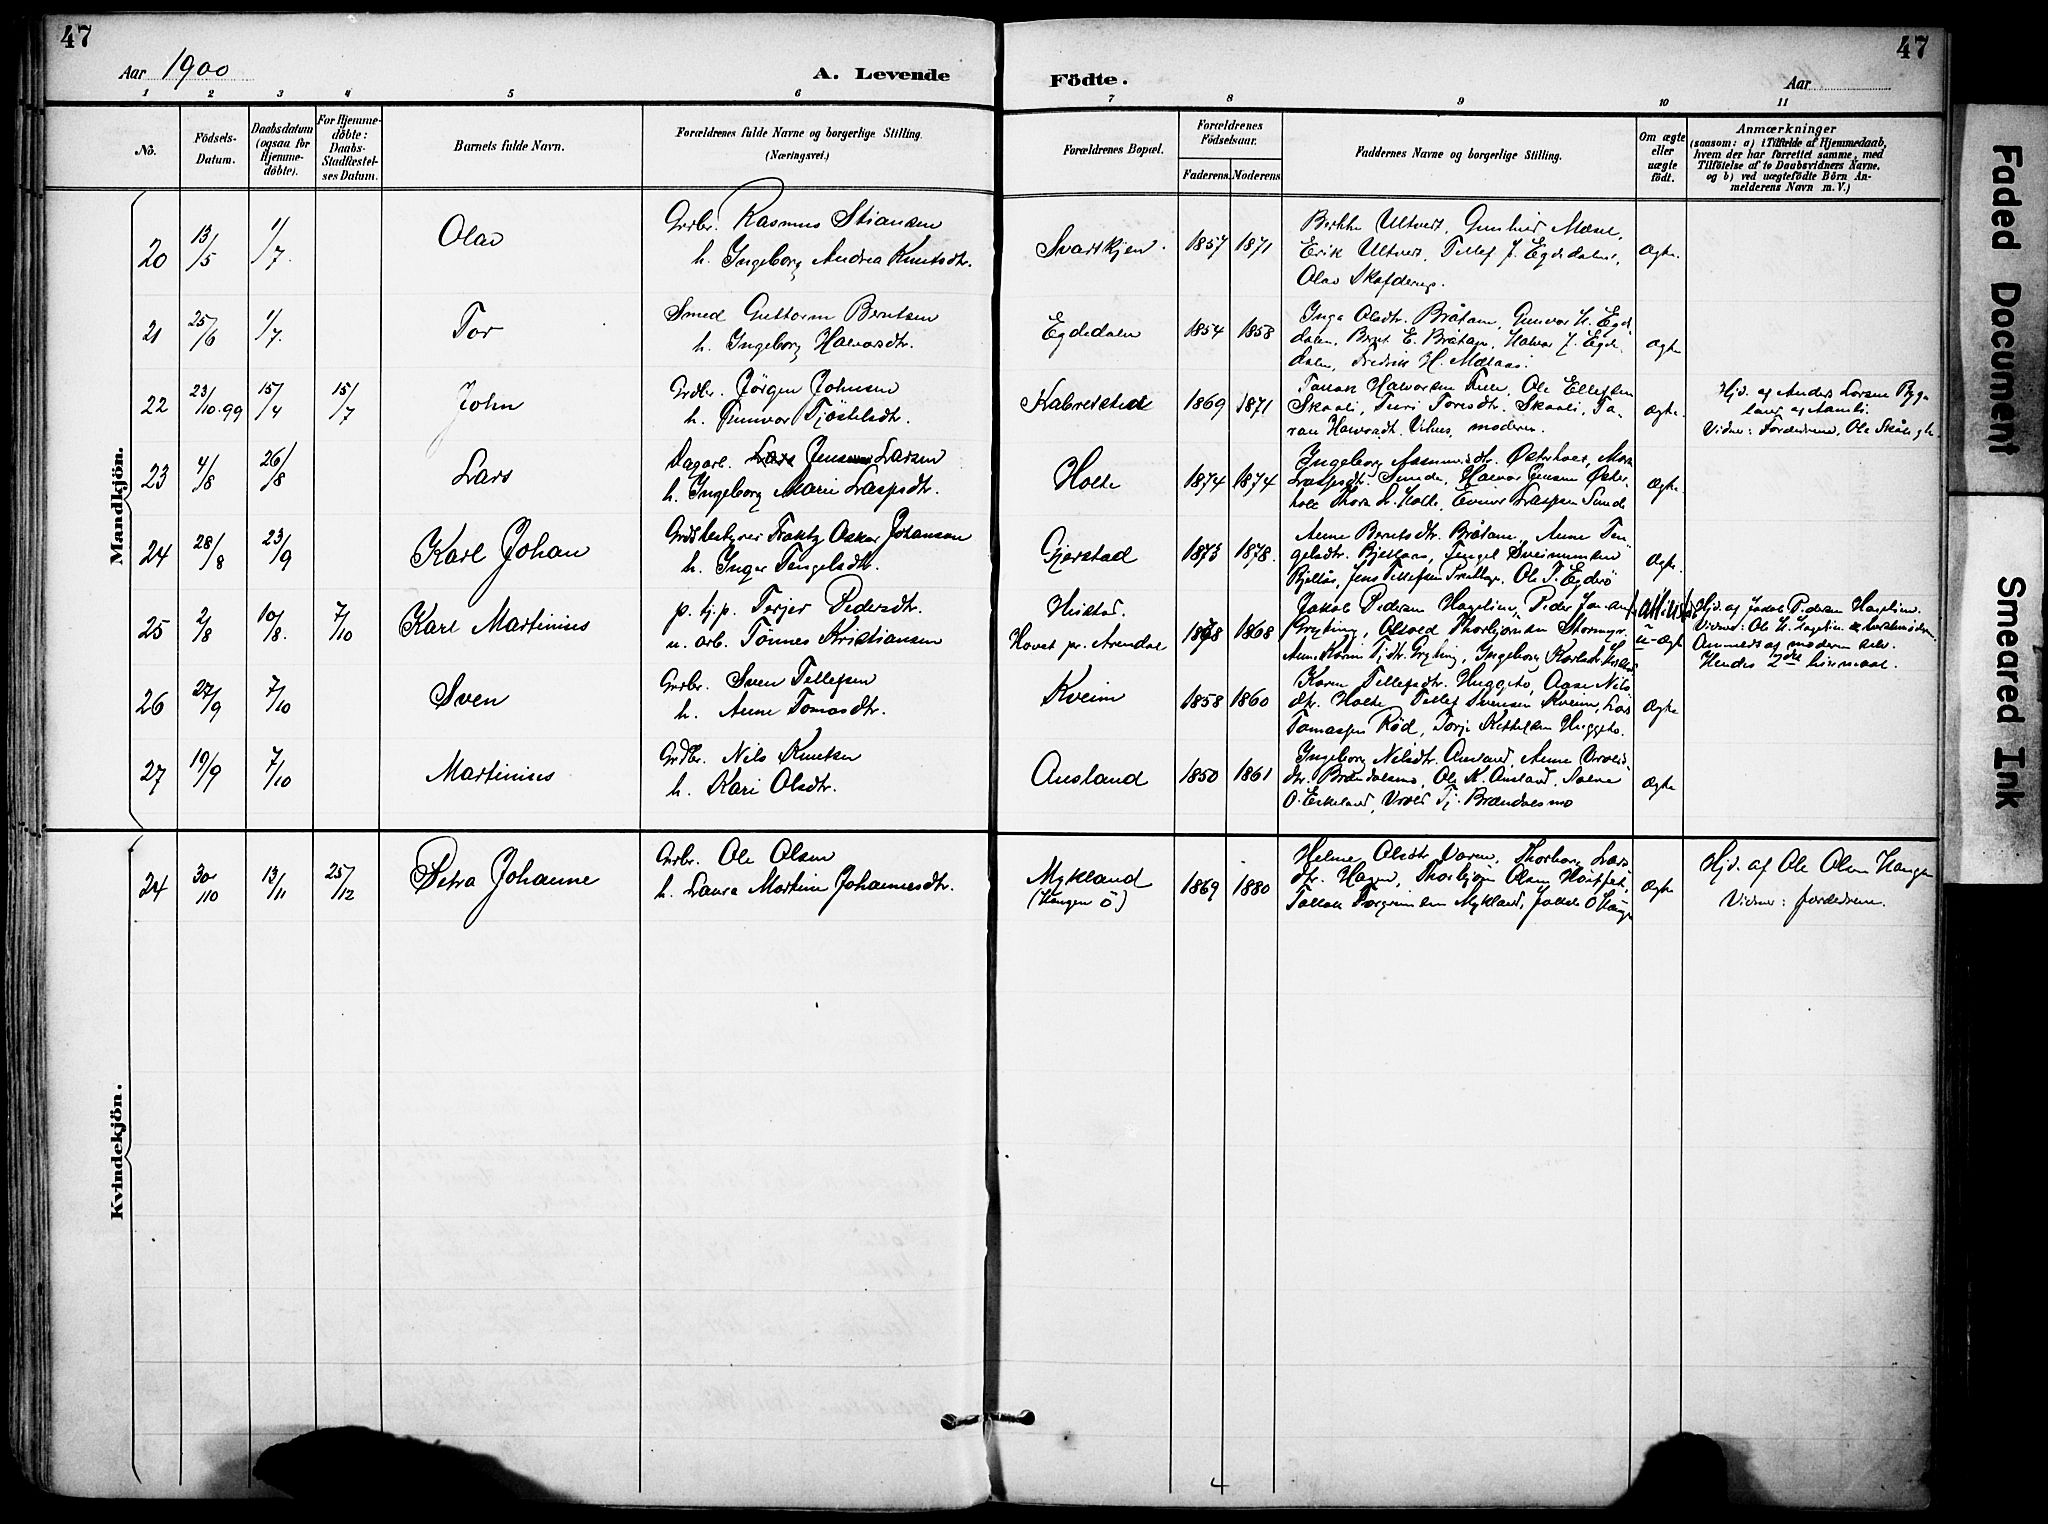 47
Aar 1900
A. Levende
Födte.
Aar
47
1 2 3 4 5 6 7 8 9 10 11
No.
Födsels-
Datum.
Daabsdatum
(ogsaa for
Hjemme-
döbte).
For Hjemme-
döbte:
Daabs-
Stadfæstel-
ses Datum.
Barnets fulde Navn.
Forældrenes fulde Navne og borgerlige Stilling.
(Næringsvei.)
Forældrenes Bopæl.
Forældrenes
Födselsaar.
Faderens. Moderens.
Faddernes Navne og borgerlige Stilling.
Om ægte
eller
uægte
födt.
Anmærkninger
(saasom: a) i Tilfælde af Hjemmedaab,
hvem der har forrettet samme, med
Tilföielse af to Daabsvidners Navne,
og b) ved uægtefödte Börn An-
melderens Navn m. V.)
Mandkjön.
20 13/5 1/7 Olav
Grbr. Rasmus Stiansen
h. Ingeborg Andrea Knutsdtr.
Svartkjen. 1857 1871
Erik Ultveit, Tellef J. Egdedalen,
Olav Skafderup.
Ægte.
21 25/6 1/7. Tor
Smed Guttorm Berntsen
h. Ingeborg Halvorsdtr.
Egdedalen 1854 1858
Inga Olsdtr. Bråtan, Gunvor H. Egde
dalen, Bernt E. Bråtan, Halvor J. Egde
dalen, Fredrik H.
Ægte
22 23/10.99 15/4 15/7 John
Grdbr. Jörgen Johnsen
h. Gunvor Tjöstelsdtr.
1869 1871
Halvorsen Ole Ellefsen
Skaali, Turi Toresdtr. Skaali, Ta-
ran Halvorsdt. moderen.
Ægte.
Hjd. af Anders Larsen Byg
land og Aamli.
Vidner: Forældrene, Ole Skåli
23 4/8 26/8 Lars
Dagarb. Lars Jensen Larsen
h. Ingeborg Marie Laspsdtr.
Holte 1874 1874
Ingeborg Østerholt,
Sunde, Halvor Jensen Øster-
holt Holte, Sunde
Ægte.
24 28/8 23/9 Karl Johan
Oskar Johanson
h. Inger Tengelsdtr.
Gjerstad 1873 1878.
Anne Berntsdtr. Bråtan, Anne Ten
gelsdtr. Tengel
Jens Tellefsen Ole T. Egderö
Ægte.
25 2/8 10/8. 7/10 Karl Martinius
p. tj.p. Terjer Pedersdtr.
u. arb. Tönnes Kristiansen
Havet pr. Arendal
1878 1868
Jakob Pedersen Hagelien, Peder
Gryting, Thorbjörnsen Stormyr.
Anne Karin Gryting, Ingeborg
u-ægte
Hjd. af Jakob Pedersen Hagelien.
Vidner: Ole H. Hagelien
Anmeldt af moderen selv.
Hendes 2det leiermaal.
26 27/9 7/10 Sven
Grbr. Sven Tellefsen
h. Anne Tomasdtr.
Kveim 1858 1860
Karen Tellefsdtr. Huggeto, Aase Nils
dtr. Holte Tellef Svensen Kveim, Lars
Tomassen Röd, Torje Kittelsen Huggeto.
Ægte
27 19/9 7/10 Martinius
Grdbr. Nils Knutsen
h. Kari Olsdtr.
Ausland 1850 1861
Ingeborg Nilsdtr. Ausland, Anne
dtr. Brændalsmo, Ole K. Ausland,
O. Eskeland, Tj. Brændalsmo
Ægte
Kvindekjön.
24 30/10 13/11 25/12 Petra Johanne
Grbr. Ole Olsen
h. Laura Martine Johannesdtr.
Mykland
(Haugen Ö)
1869 1880
Helene Olsdtr Thorborg Lars
dtr. Hagen, Thorbjörn Olsen
Tallak Torgrimsen Mykland,
Ægte
Hjd. af Ole Olsen Haugen
Vidner: forældrene.
4
Faded Document
Smeared Ink